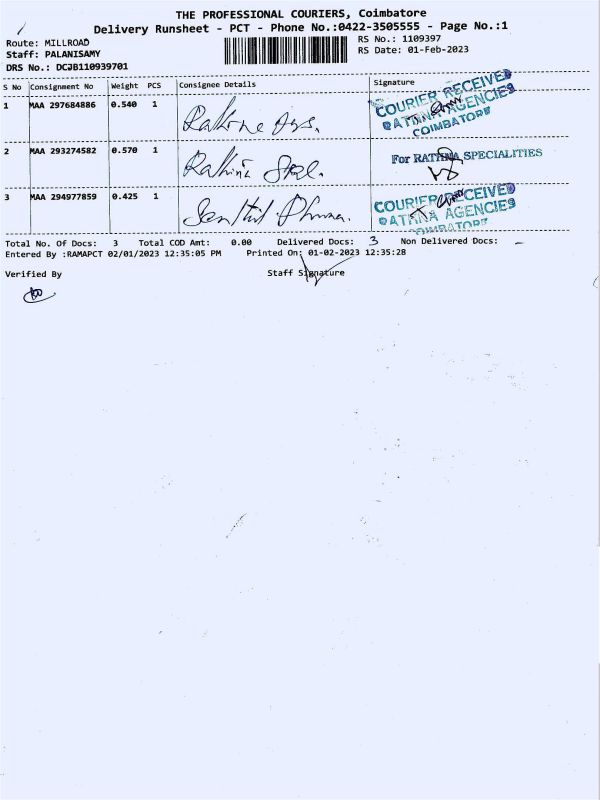 THE PROFESSIONAL COURIERS, Coimbatore
Delivery Runsheet - PCT - Phone No.:0422-3505555 - Page No.:1
Route: MILLROAD
Staff: PALANISAMY
DRS No.: DCJB110939701
RS No.: 1109397
RS Date: 01-Feb-2023
S No Consignment No Weight PCS Consignee Details Signature
1 MAA 297684886 0.540 1 COURIER RECEIVED
RATHNA AGENCIES
COIMBATORE
2 MAA 293274582 0.570 1 Rathna For RATHNA SPECIALITIES
3 MAA 294977859 0.425 1 Senthil Pharma. COURIER RECEIVED
RATHNA AGENCIES
COIMBATORE
Total No. Of Docs: 3 Total COD Amt: 0.00 Delivered Docs: 3 Non Delivered Docs: -
Entered By :RAMAPCT 02/01/2023 12:35:05 PM Printed On: 01-02-2023 12:35:28
Verified By Staff Signature